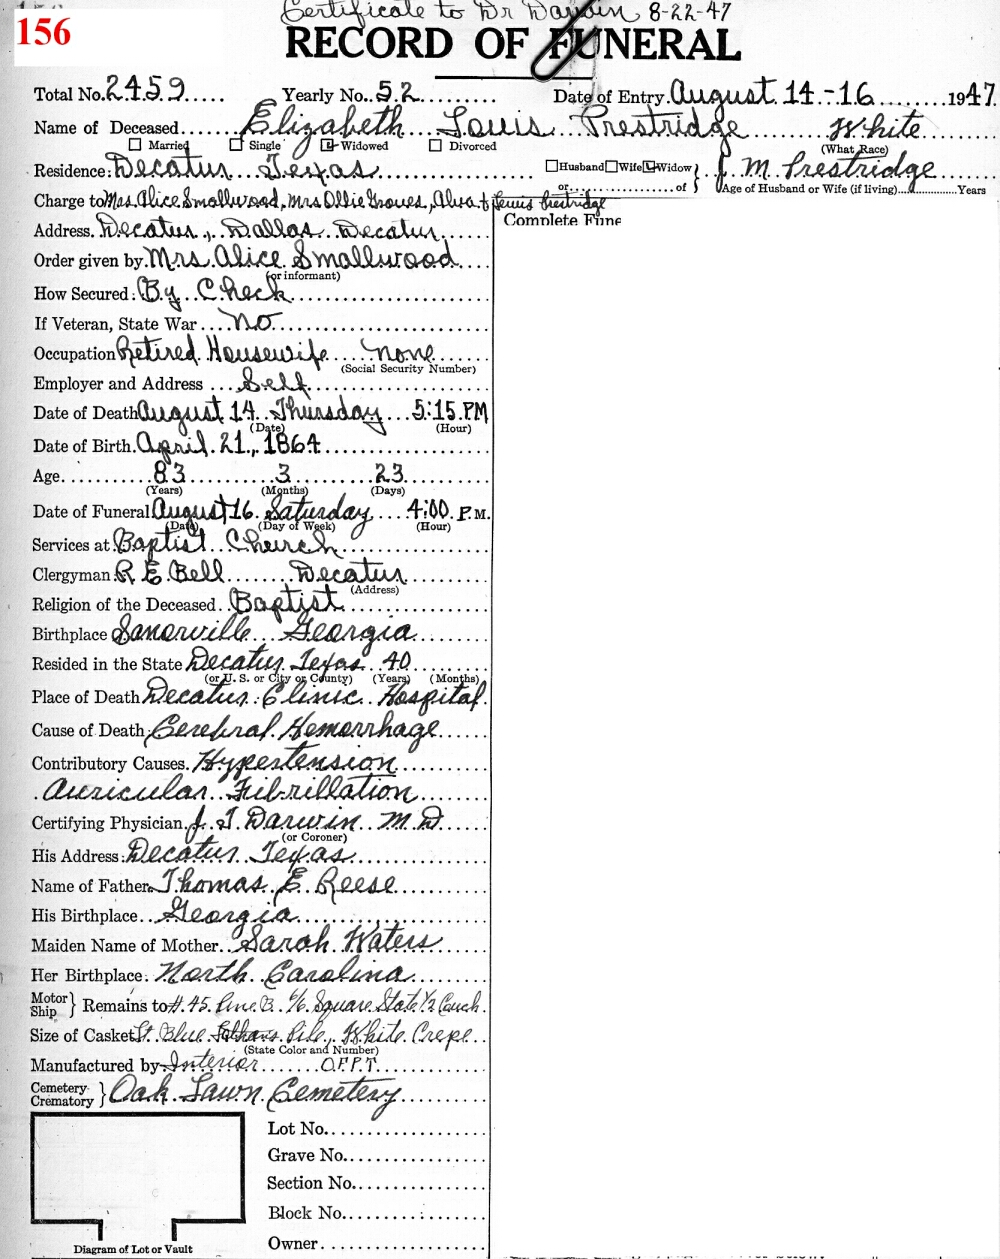 Certificate to Dr Darwin 8-22-47
156
RECORD OF FUNERAL
Total No. 2459 Yearly No. 52 Date of Entry August 14-16 1947
Name of Deceased Elizabeth Louis Prestridge White
Married Single Widowed Divorced (What Race)
Residence: Decatur Texas Husband Wife Widow } J. M. Prestridge
or of Age of Husband or Wife (if living) Years
Charge to Mrs. Alice Smallwood, Mrs Ollie Groves, Alva & Lewis Prestridge
Complete Fune
Address. Decatur, Dallas Decatur
Order given by Mrs. Alice Smallwood
(or informant)
How Secured: By Check
If Veteran, State War No
Occupation Retired Housewife none
(Social Security Number)
Employer and Address Self
Date of Death August 14 Thursday 5:15 PM
(Date) (Hour)
Date of Birth April 21, 1864
Age 83 3 23
(Years) (Months) (Days)
Date of Funeral August 16 Saturday 4:00 P.M.
(Date) (Day of Week) (Hour)
Services at Baptist Church
Clergyman R E Bell Decatur
(Address)
Religion of the Deceased Baptist
Birthplace Georgia
Resided in the State Decatur Texas 40
(or U. S. or City or County) (Years) (Months)
Place of Death Decatur Clinic Hospital
Cause of Death Cerebral Hemorrhage
Contributory Causes. Hypertension
Auricular Fibrillation
Certifying Physician J. T. Darwin M.D
(or Coroner)
His Address: Decatur Texas
Name of Father Thomas E. Reese
His Birthplace Georgia
Maiden Name of Mother Sarah Waters
Her Birthplace North Carolina
Motor
Ship } Remains to # 45 6/6 Square State 1/2 Couch
Size of Casket Lt. Blue Pile, White Crepe
(State Color and Number)
Manufactured by Interior
Cemetery
Crematory } Oak Lawn Cemetery
Lot No.
Grave No.
Section No.
Block No.
Owner
Diagram of Lot or Vault